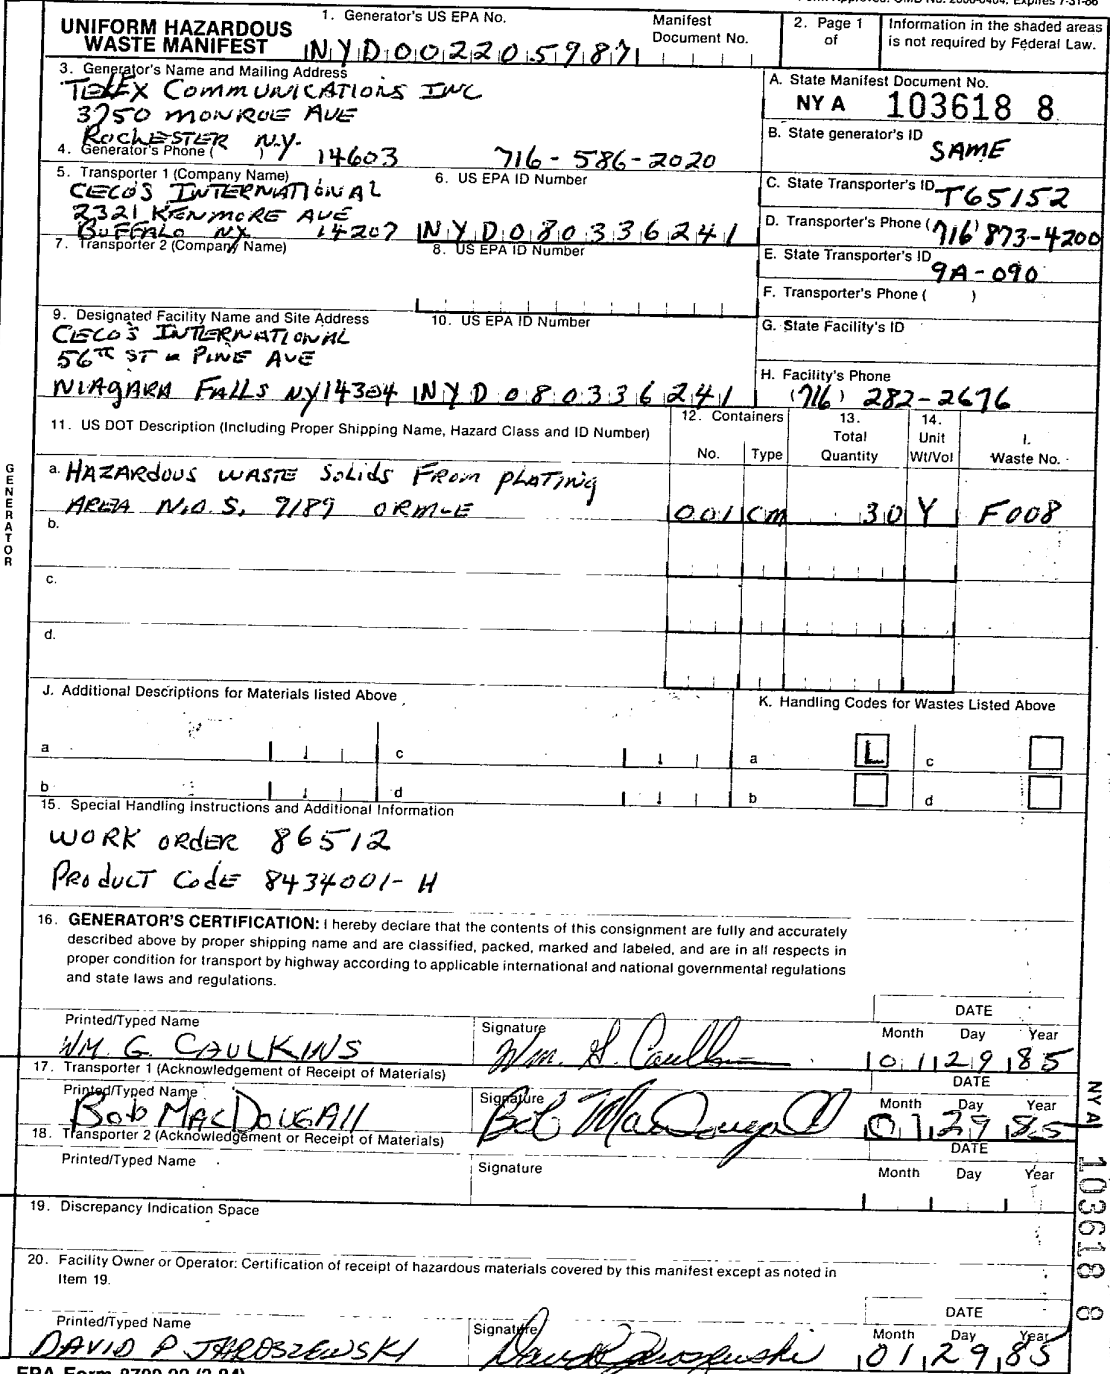 Form Approved. OMB No. 2000-0404. Expires 7-31-86
UNIFORM HAZARDOUS WASTE MANIFEST
1. Generator's US EPA No.
NYD002205987
Manifest Document No.
2. Page 1 of
Information in the shaded areas is not required by Federal Law.
3. Generator's Name and Mailing Address
TELEX COMMUNICATIONS INC
3750 MONROE AVE
ROCHESTER N.Y.
4. Generator's Phone ( ) 14603 716-586-2020
A. State Manifest Document No.
NY A 103618 8
B. State generator's ID
SAME
5. Transporter 1 (Company Name)
CECOS INTERNATIONAL
2321 KENMORE AVE
BUFFALO NY 14207
6. US EPA ID Number
NYD080336241
C. State Transporter's ID T65152
D. Transporter's Phone (716) 873-4200
7. Transporter 2 (Company Name)
8. US EPA ID Number
E. State Transporter's ID
9A-090
F. Transporter's Phone ( )
9. Designated Facility Name and Site Address
CECOS INTERNATIONAL
56TH ST & PINE AVE
NIAGARA FALLS NY 14304
10. US EPA ID Number
NYD080336241
G. State Facility's ID
H. Facility's Phone
(716) 282-2676
11. US DOT Description (Including Proper Shipping Name, Hazard Class and ID Number)
12. Containers
No. Type
13. Total Quantity
14. Unit Wt/Vol
I. Waste No.
GENERATOR
a. HAZARDOUS WASTE SOLIDS FROM PLATING
AREA N.O.S. 9189 ORM-E 001 CM 30 Y F008
b.
c.
d.
J. Additional Descriptions for Materials listed Above
K. Handling Codes for Wastes Listed Above
a c a L c
b d b d
15. Special Handling Instructions and Additional Information
WORK ORDER 86512
PRODUCT CODE 8434001-H
16. GENERATOR'S CERTIFICATION: I hereby declare that the contents of this consignment are fully and accurately
described above by proper shipping name and are classified, packed, marked and labeled, and are in all respects in
proper condition for transport by highway according to applicable international and national governmental regulations
and state laws and regulations.
DATE
Printed/Typed Name Signature Month Day Year
WM. G. CAULKINS Wm. G. Caulkins 01 29 85
17. Transporter 1 (Acknowledgement of Receipt of Materials)
DATE
Printed/Typed Name Signature Month Day Year
Bob MacDougall Bob MacDougall 01 29 85
18. Transporter 2 (Acknowledgement or Receipt of Materials)
DATE
Printed/Typed Name Signature Month Day Year
19. Discrepancy Indication Space
20. Facility Owner or Operator: Certification of receipt of hazardous materials covered by this manifest except as noted in
Item 19.
DATE
Printed/Typed Name Signature Month Day Year
DAVID P JAROSZEWSKI David P Jaroszewski 01 29 85
NY A 103618 8
EPA Form 8700-22 (3-84)